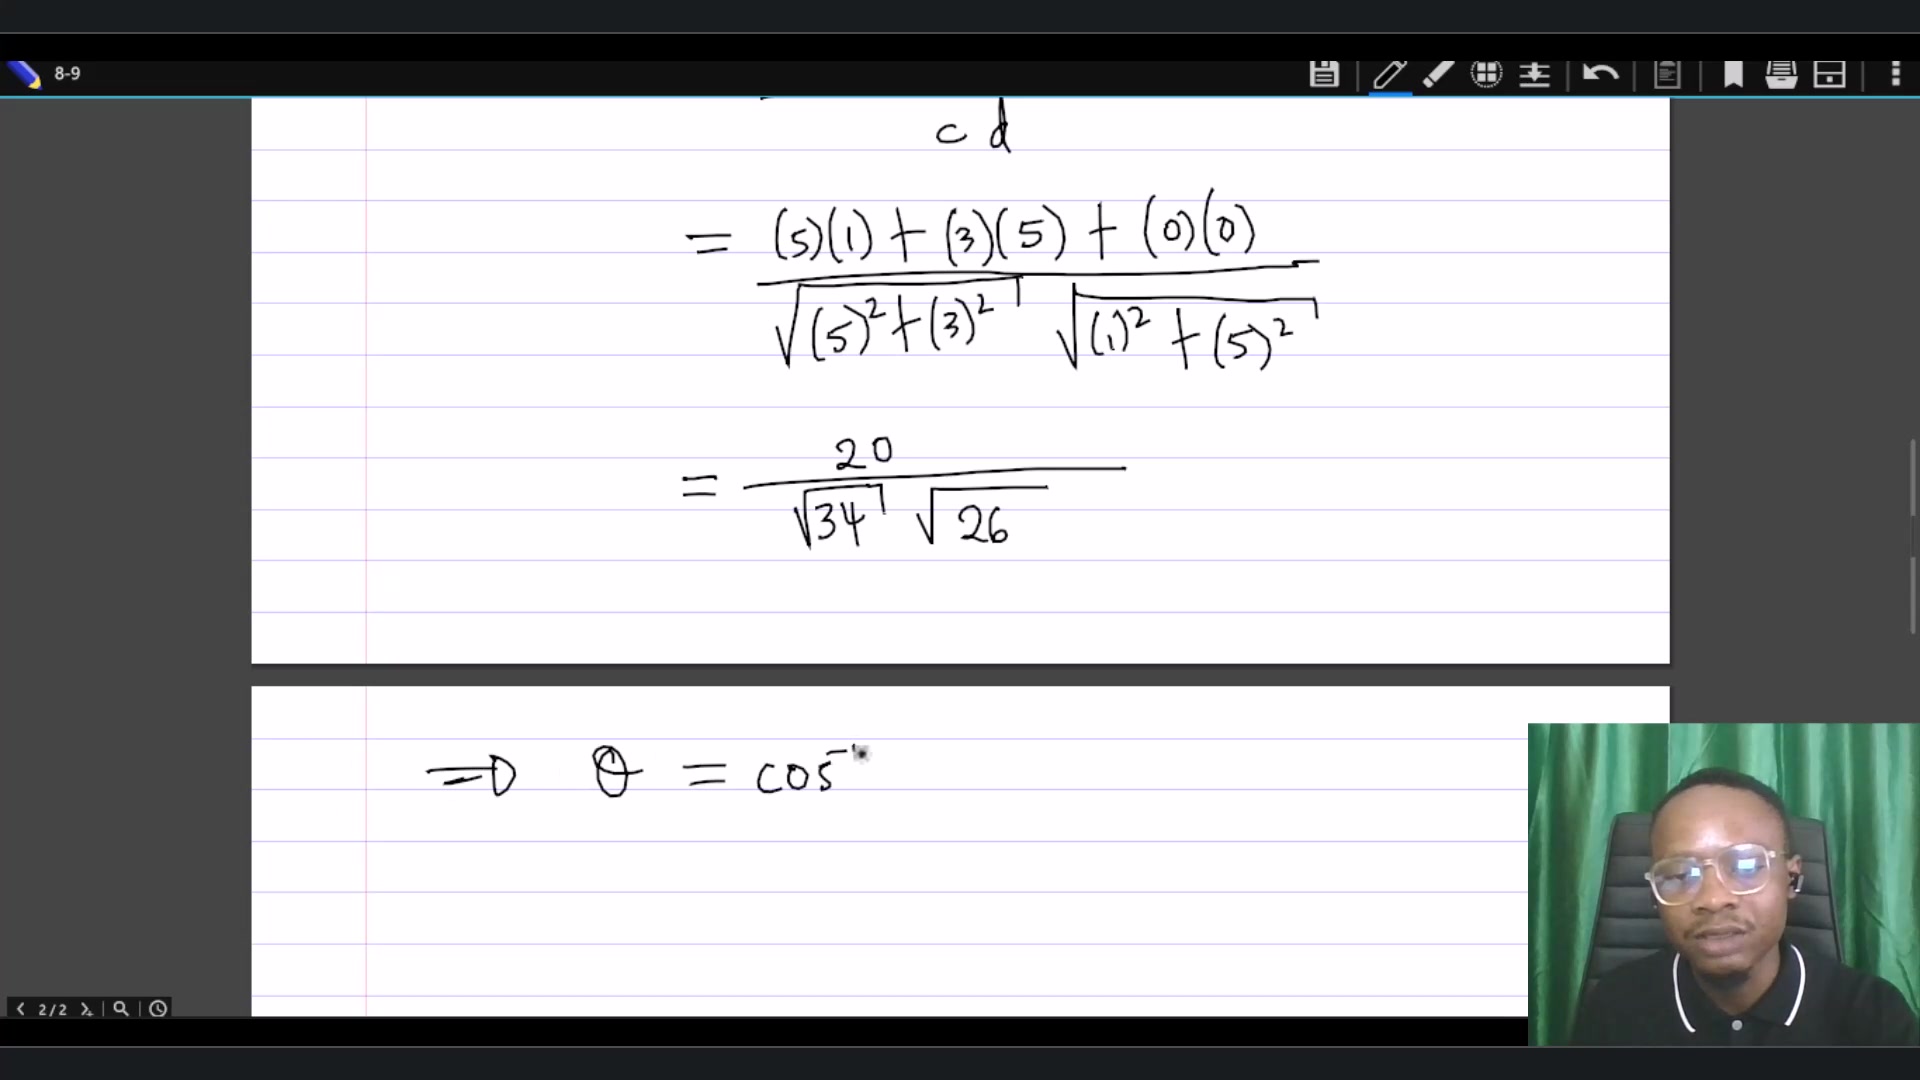 8-9
c d
= (5)(1) + (3)(5) + (0)(0)
√(5)² + (3)² √(1)² + (5)²
= 20
√34 √26
⇒ θ = cos⁻¹
2/2